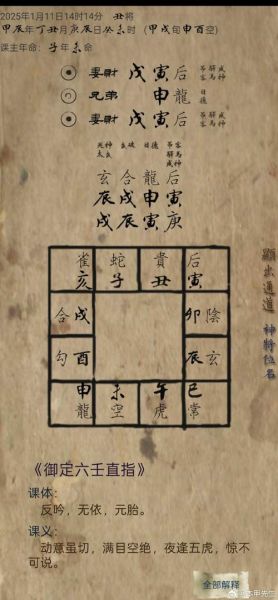 2025年1月11日14时14分 丑将
甲辰年丁丑月庚辰日癸未时 (甲戌旬申酉空)
课主年命：子年未命
妻財 戊寅 后
兄弟 申 龍 日德
妻財 戊寅 后
玄合龍后
辰戌申寅
戌辰寅庚
雀 蛇 貴 后
亥 子 丑 寅
合戌 卯陰
勾酉 辰玄
申 未 午 巳
龍 空 虎 常
顯出通道 神特位名
《御定六壬直指》
课体：
反吟，无依，元胎。
课义：
动意虽切，满目空绝，夜逢五虎，惊不可说。
全部解释